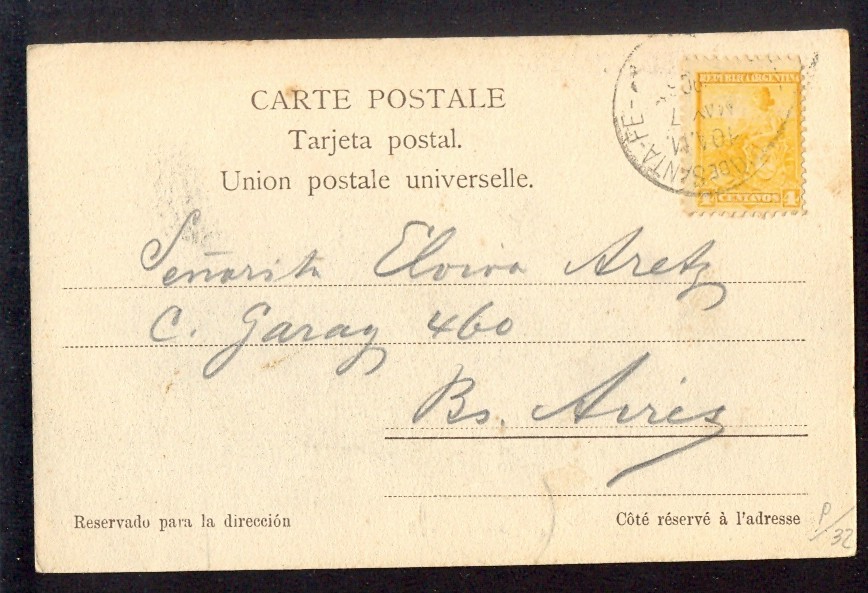 CARTE POSTALE
Tarjeta postal.
Union postale universelle.
REPUBLICA ARGENTINA
4 CENTAVOS 4
SANTA-FE-
10 A.M.
MAY 7
Señorita Elvira Aretz
C. Garay 460
Bs. Aires
Reservado para la dirección
Côté réservé à l'adresse
P/32